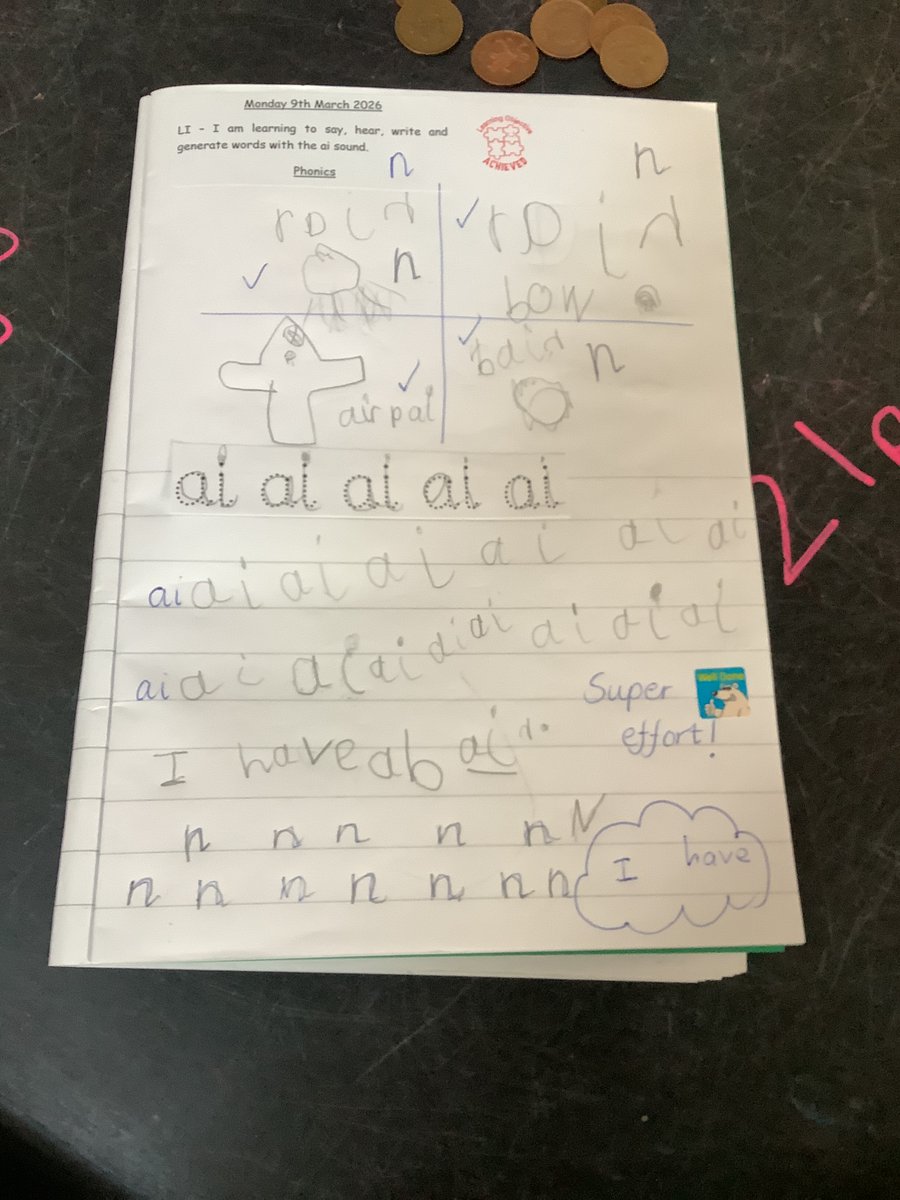 Monday 9th March 2026
LI - I am learning to say, hear, write and
generate words with the ai sound.
Learning Objective
ACHIEVED
Phonics
n
n
rain
n
rain
bow
bain
n
airpal
ai ai ai ai ai
ai ai ai ai ai ai ai
ai ai ai ai ai ai ai ai ai
Super
Well Done
effort!
I have a bain.
n n n n n N
n n n n n n n
I have